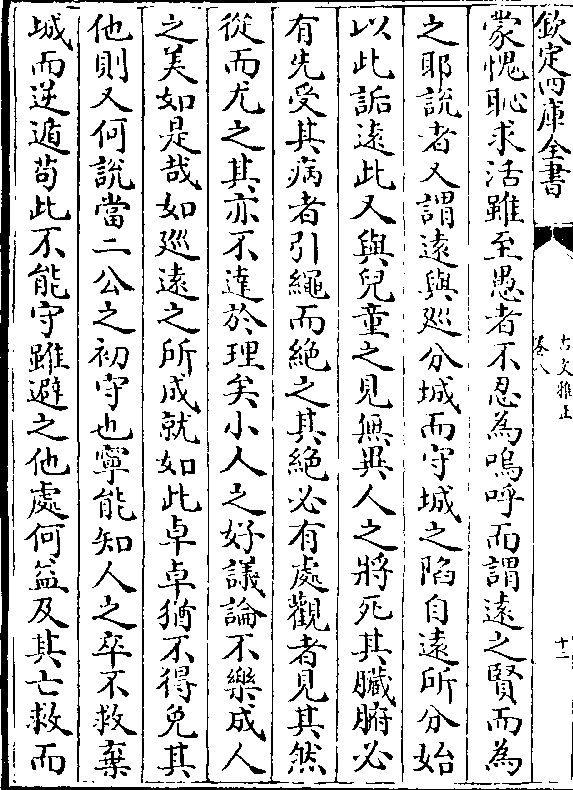 欽定四庫全書
古文雅正
卷八
十二
蒙愧恥求活雖至愚者不忍為嗚呼而謂遠之賢而為
之耶說者又謂遠與廵分城而守城之陷自遠所分始
以此詬遠此又與兒童之見無異人之將死其臟腑必
有先受其病者引繩而絶之其絶必有處觀者見其然
從而尤之其亦不達於理矣小人之好議論不樂成人
之美如是哉如廵遠之所成就如此卓卓猶不得免其
他則又何說當二公之初守也寧能知人之卒不救棄
城而逆遁苟此不能守雖避之他處何益及其亡救而